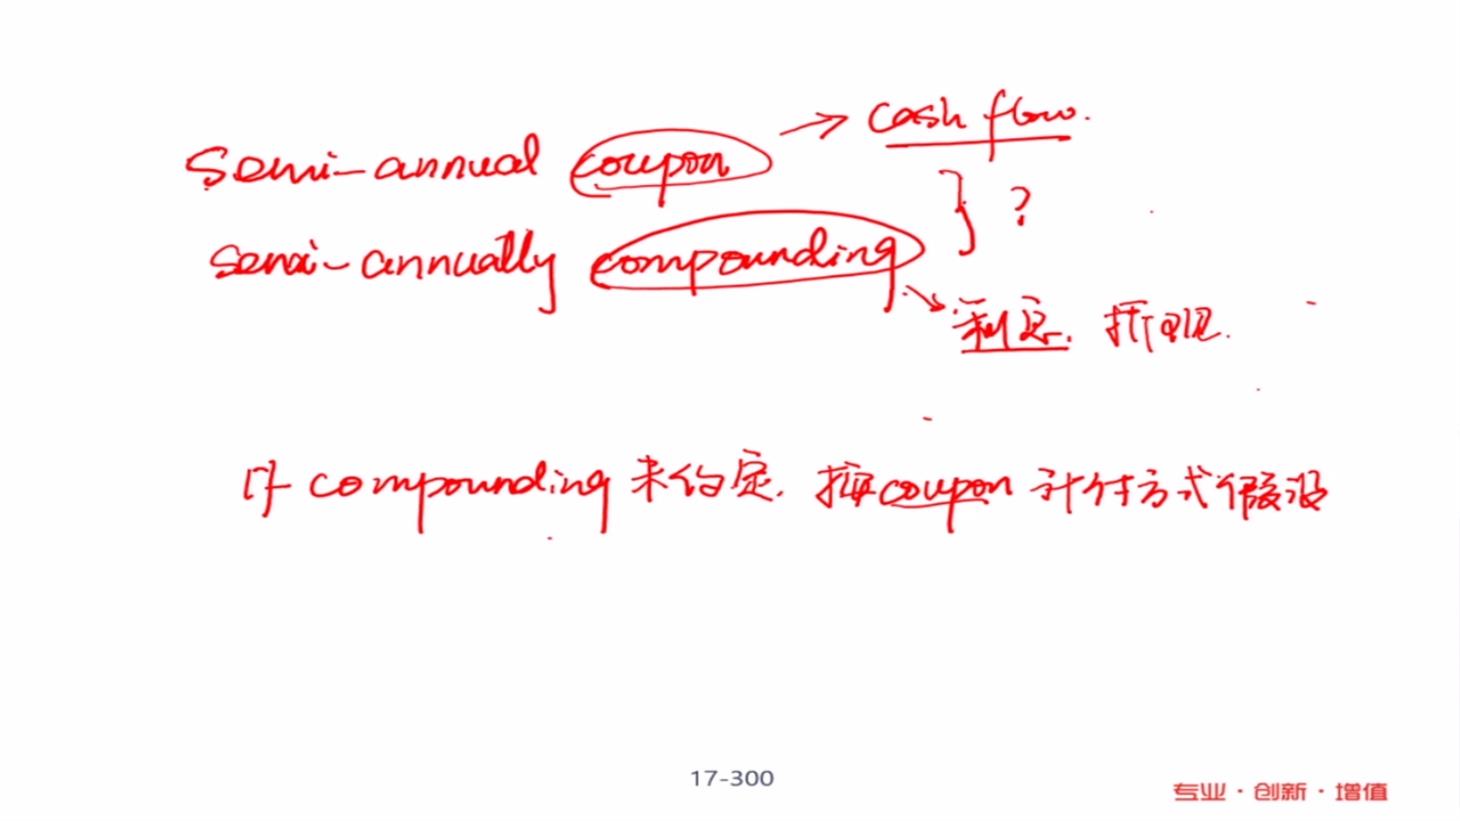 semi-annual coupon → cash flow.
} ?
semi-annually compounding
→ 利息. 折现.
If compounding 未约定. 按coupon 计付方式假设
17-300
专业·创新·增值